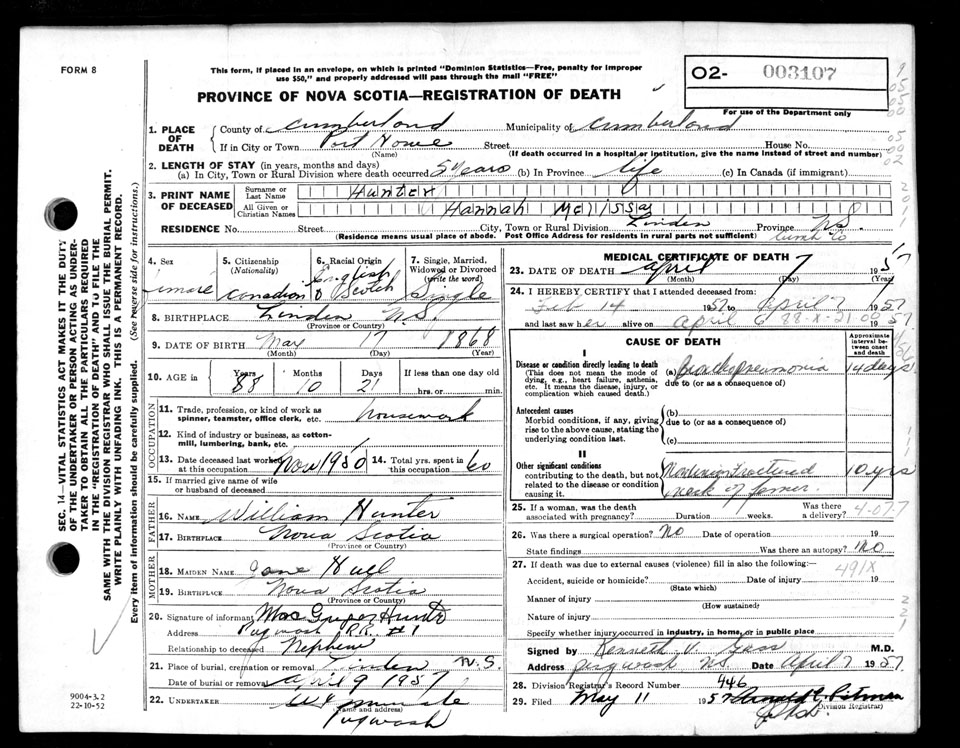 FORM 8
This form, if placed in an envelope, on which is printed "Dominion Statistics—Free, penalty for improper
use $50," and properly addressed will pass through the mail "FREE"
O2- 003107
PROVINCE OF NOVA SCOTIA—REGISTRATION OF DEATH
For use of the Department only
1. PLACE OF DEATH
County of Cumberland Municipality of Cumberland
If in City or Town Port Howe Street House No.
(Name) (If death occurred in a hospital or institution, give the name instead of street and number)
2. LENGTH OF STAY (in years, months and days)
(a) In City, Town or Rural Division where death occurred 5 years (b) In Province life (c) In Canada (if immigrant)
3. PRINT NAME OF DECEASED
Surname or Last Name Hunter
All Given or Christian Names Hannah Mellissa
RESIDENCE No. Street City, Town or Rural Division Linden Province N.S.
(Residence means usual place of abode. Post Office Address for residents in rural parts not sufficient) Cumb Co
4. Sex
5. Citizenship (Nationality) Canadian
6. Racial Origin English & Scotch
7. Single, Married, Widowed or Divorced (write the word) Single
8. BIRTHPLACE Linden N.S.
(Province or Country)
9. DATE OF BIRTH May 17 1868
(Month) (Day) (Year)
10. AGE in Years 88 Months 10 Days 21 If less than one day old
hrs. or min.
OCCUPATION
11. Trade, profession, or kind of work as
spinner, teamster, office clerk, etc. housework
12. Kind of industry or business, as cotton-
mill, lumbering, bank, etc.
13. Date deceased last worked at this occupation Nov 1950 14. Total yrs. spent in this occupation 60
15. If married give name of wife
or husband of deceased
FATHER
16. NAME William Hunter
17. BIRTHPLACE Nova Scotia
(Province or Country)
MOTHER
18. MAIDEN NAME Jane Hull
19. BIRTHPLACE Nova Scotia
(Province or Country)
20. Signature of informant MacGregor Hunter
Address Pugwash R.R. #1
Relationship to deceased Nephew
21. Place of burial, cremation or removal Linden N.S.
Date of burial or removal April 9 1957
22. UNDERTAKER
(Name and address)
Pugwash
MEDICAL CERTIFICATE OF DEATH
23. DATE OF DEATH April 7 1957
(Month) (Day) (Year)
24. I HEREBY CERTIFY that I attended deceased from:
Feb 14 1957 to April 7 1957
and last saw her alive on April 6 88-X-21 00 1957
CAUSE OF DEATH
Approximate interval between onset and death
I
Disease or condition directly leading to death
(This does not mean the mode of
dying, e.g., heart failure, asthenia,
etc. It means the disease, injury, or
complication which caused death.)
(a) Bronchopneumonia 14 days
due to (or as a consequence of)
Antecedent causes
Morbid conditions, if any, giving
rise to the above cause, stating the
underlying condition last.
(b)
due to (or as a consequence of)
(c)
II
Other significant conditions
contributing to the death, but not
related to the disease or condition
causing it.
Nonunion fractured 10 yrs
neck of femur.
25. If a woman, was the death
associated with pregnancy? Duration weeks. Was there a delivery? 4-07-7
26. Was there a surgical operation? No Date of operation 19
State findings Was there an autopsy? No
27. If death was due to external causes (violence) fill in also the following:—
491X
Accident, suicide or homicide? Date of injury 19
(State which)
Manner of injury
(How sustained)
Nature of injury
Specify whether injury occurred in industry, in home, or in public place
Signed by Kenneth V. Gass M.D.
Address Pugwash N.S. Date April 7 1957
28. Division Registrar's Record Number 446
29. Filed May 11 1957
Division Registrar)
SEC. 14—VITAL STATISTICS ACT MAKES IT THE DUTY
OF THE UNDERTAKER OR PERSON ACTING AS UNDER-
TAKER TO OBTAIN ALL THE PARTICULARS REQUIRED
IN THE "REGISTRATION OF DEATH" AND TO FILE THE
SAME WITH THE DIVISION REGISTRAR WHO SHALL ISSUE THE BURIAL PERMIT.
WRITE PLAINLY WITH UNFADING INK. THIS IS A PERMANENT RECORD.
Every item of information should be carefully supplied. (See reverse side for instructions.)
9004-3.2
22-10-52